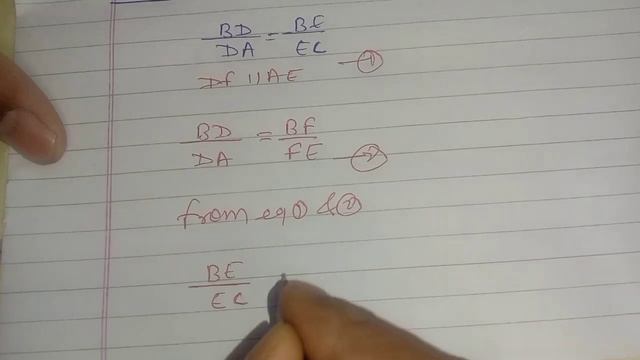 BD/DA = BE/EC
DF || AE —①
BD/DA = BF/FE —②
from eq ① & ②
BE/EC